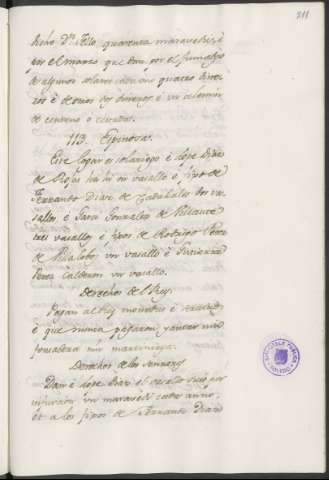 211
dicho Dn. Tello quarenta maravedis, é
por el marzo que dan por el fumadgo
de algunos solares cada uno quatro dine-
ros é de otros dos dineros é un celemin
de centeno o cevada.
113. Espinosa.
Este logar es solariego é Lope Diaz
de Rojas ha hi un vasallo é fijos de
Ferrando Diaz de dos va-
sallos é Garci Gonzalez de
tres vasallos é fijos de Rodrigo Perez
de Villalobos un vasallo é Gutierre
Perez Calderon un vasallo.
Derechos del Rey.
Pagan al Rey monedas é servicios
é que nunca pagaron yantar nin
fonsadera nin martiniega.
Derechos de los Señores
Dan é Lope Diaz el vasallo suio por
infurcion un maravedi cada anno,
et a los fijos de Ferrando Diaz